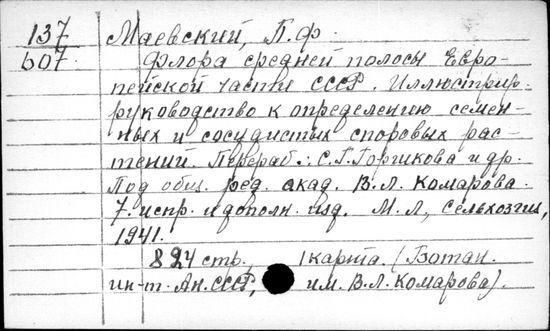 137
607
Маевский, П.Ф.
Флора средней полосы Евро-
пейской части СССР. Иллюстрир.
руководство к определению семен-
ных и сосудистых споровых рас-
тений. Перераб.: С.Г. Горшкова и др.
Под общ. ред. акад. В.Л. Комарова.
7. испр. и дополн. изд. М.Л., Сельхозгиз,
1941.
824 стр. 1 карта. (Ботан.
ин-т. Ак. СССР, им. В.Л. Комарова).